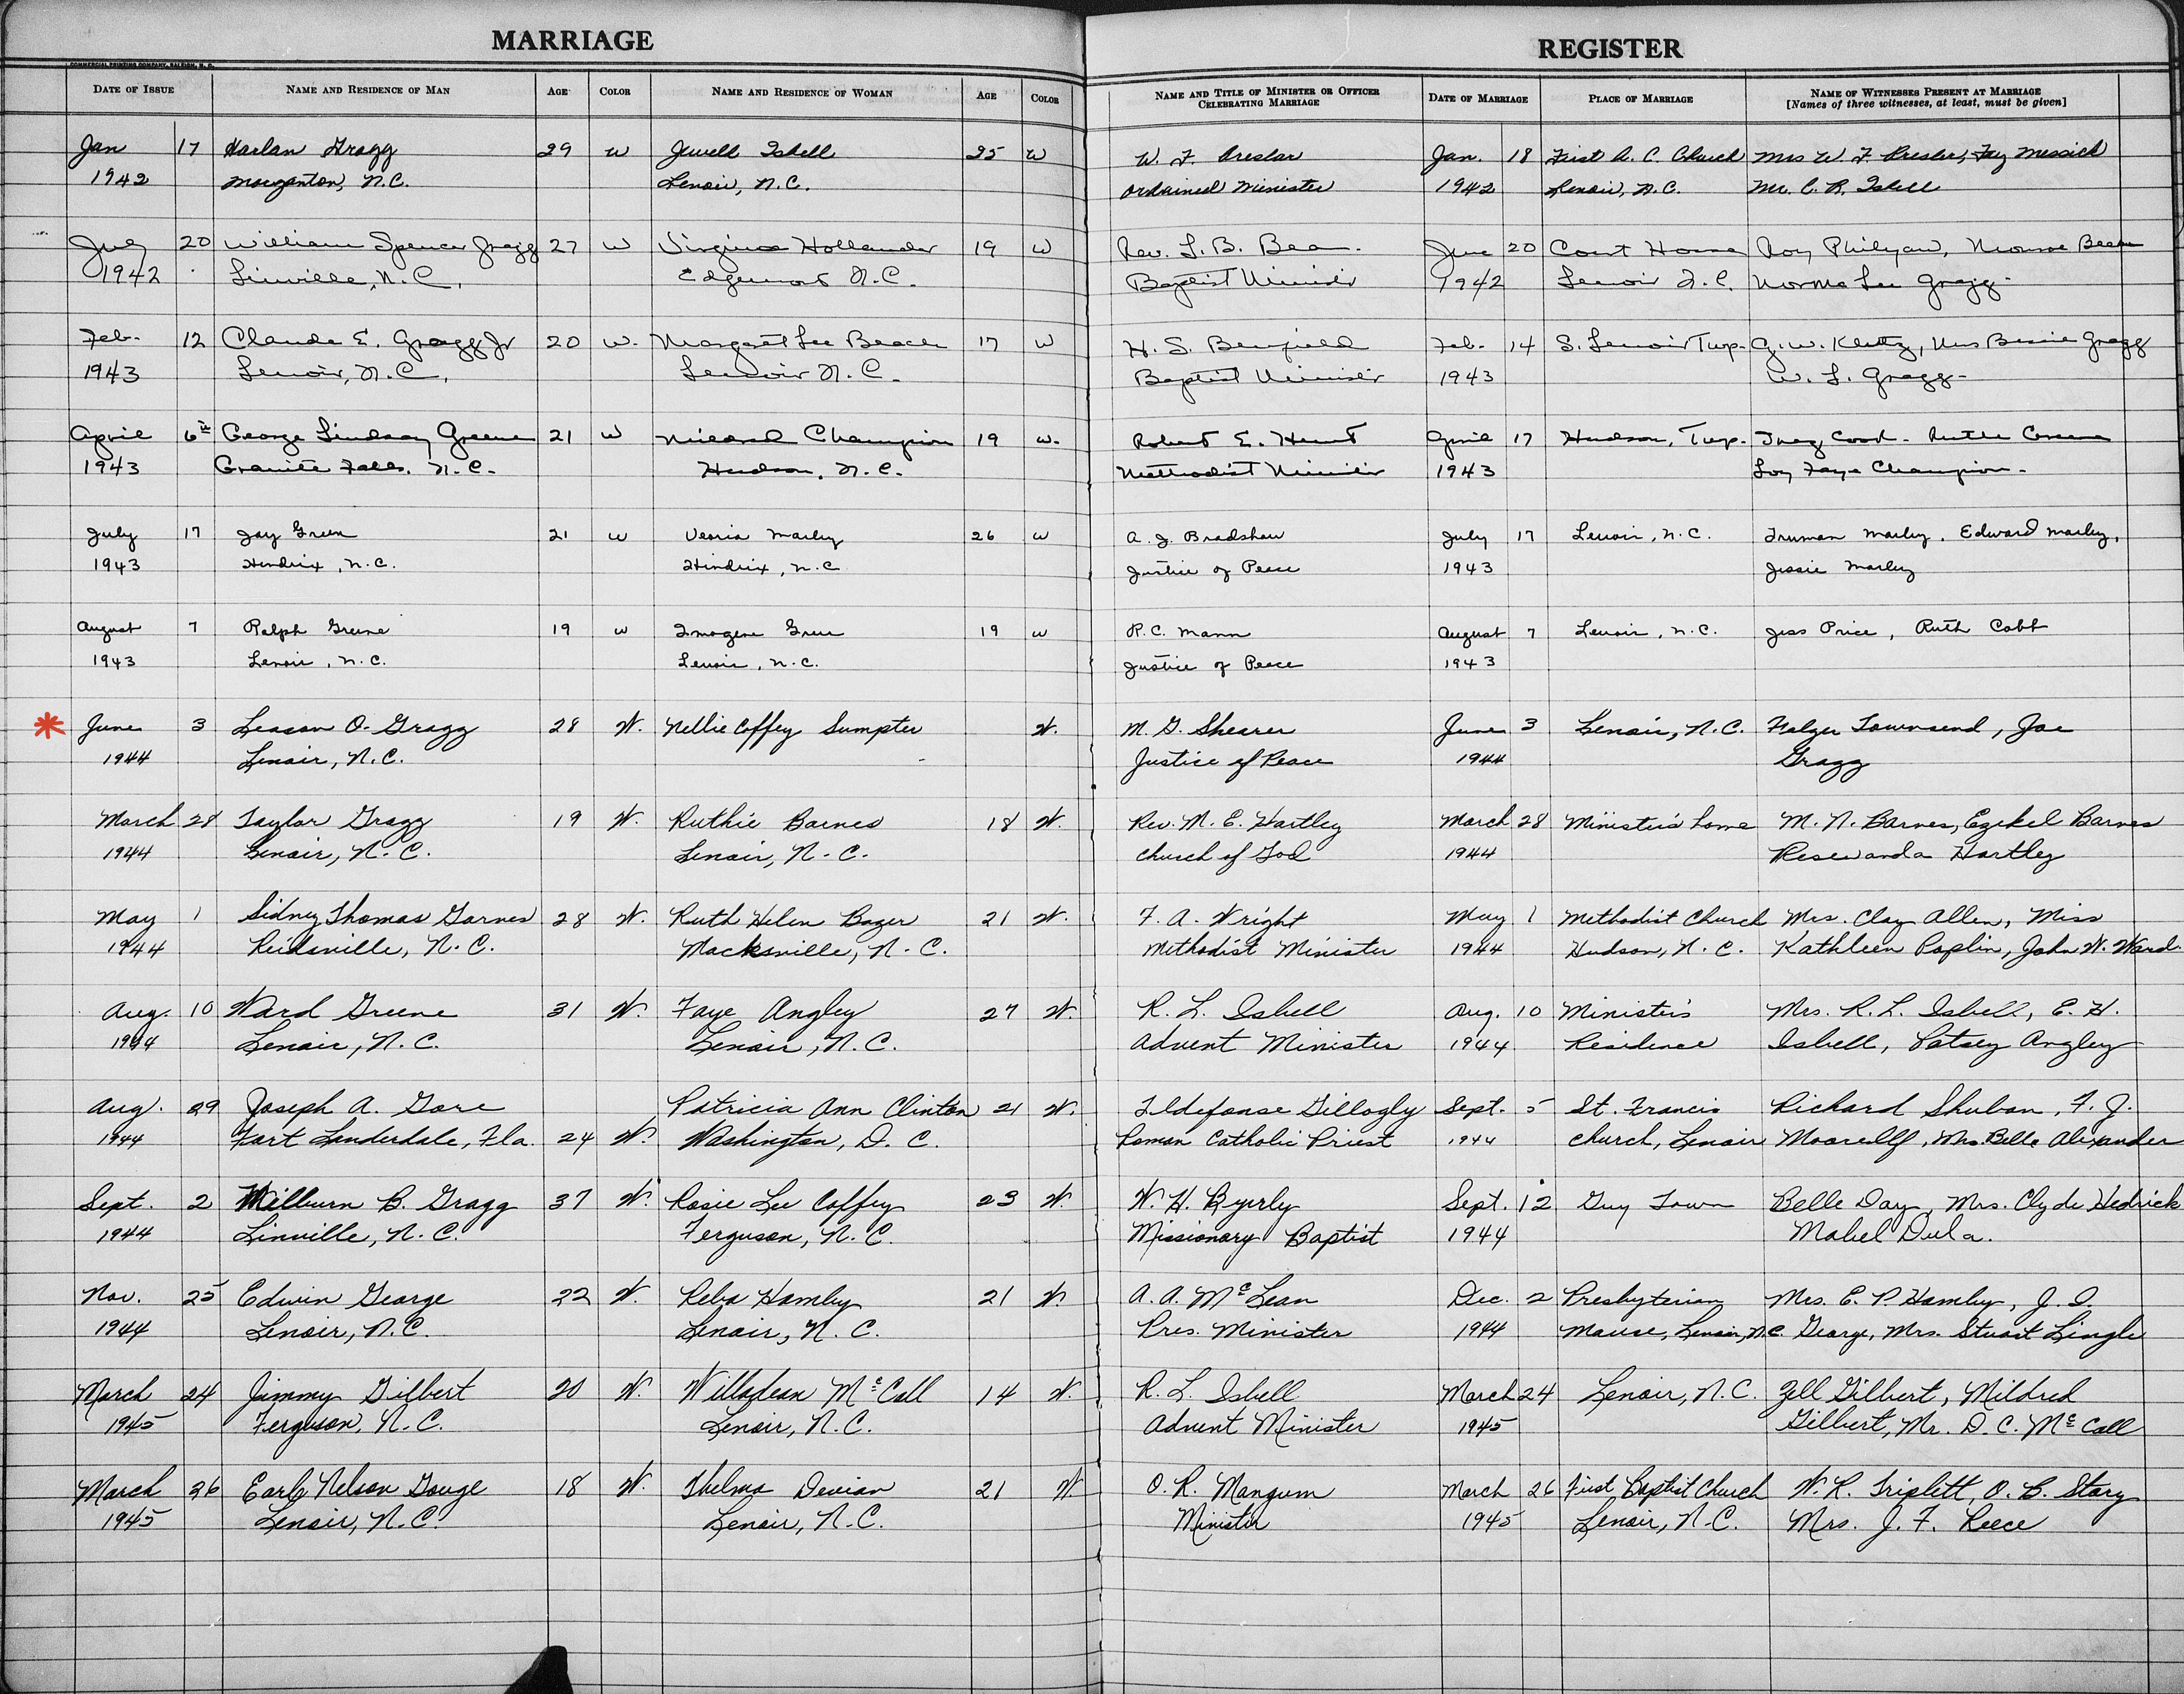 MARRIAGE
REGISTER
COMMERCIAL PRINTING COMPANY, RALEIGH, N. C.
DATE OF ISSUE NAME AND RESIDENCE OF MAN AGE COLOR NAME AND RESIDENCE OF WOMAN AGE COLOR NAME AND TITLE OF MINISTER OR OFFICER CELEBRATING MARRIAGE DATE OF MARRIAGE PLACE OF MARRIAGE NAME OF WITNESSES PRESENT AT MARRIAGE [Names of three witnesses, at least, must be given]
Jan 17 Harlan Gragg 29 W Jewell Isbell 25 W W. F. Presler Jan. 18 First A. C. Church Mrs W. F. Presler, Fay Messick
1942 Morganton, N.C. Lenoir, N.C. Ordained Minister 1942 Lenoir, N.C. Mr. C. R. Isbell
20 William Spencer Gragg 27 W Virginia Hollander 19 W Rev. L. B. June 20 Court House Roy Philyaw, Monroe
1942 Linville, N.C. Edgemont N.C. Baptist Minister 1942 Lenoir N.C. Norma Lee Gragg
Feb. 12 Claude E. Gragg Jr 20 W. Margaret Lee Beach 17 W H. S. Benfield Feb. 14 S. Lenoir Twp. G. W. Klutz, Mrs Bessie Gragg
1943 Lenoir, N.C. Lenoir N.C. Baptist Minister 1943 W. L. Gragg
April 6th George Lindsay Greene 21 W Mildred Champion 19 W. Robert E. Hunt April 17 Hudson, Twp. Cook - Ruth Greene
1943 Granite Falls, N.C. Hudson, N.C. Methodist Minister 1943 Loy Faye Champion
July 17 Jay Green 21 W Veoria Marley 26 W A. J. Bradshaw July 17 Lenoir, N.C. Truman Marley, Edward Marley,
1943 Hendrix, N.C. Hendrix, N.C. Justice of Peace 1943 Jessie Marley
August 7 Ralph Greene 19 W Imogene Greene 19 W R. C. Mann August 7 Lenoir, N.C. Jess Price, Ruth Cobb
1943 Lenoir, N.C. Lenoir, N.C. Justice of Peace 1943
* June 3 Leason O. Gragg 28 W. Nellie Coffey Sumpter W. M. G. Shearer June 3 Lenoir, N.C. Folger Townsend, Joe
1944 Lenoir, N.C. Justice of Peace 1944 Gragg
March 28 Taylor Gragg 19 W. Ruthie Barnes 18 W. Rev. M. E. Hartley March 28 Minister's home M. N. Barnes, Ezekel Barnes
1944 Lenoir, N.C. Lenoir, N.C. Church of God 1944 Hartley
May 1 Sidney Thomas Garnes 28 W. Ruth Helen Bozer 21 W. F. A. Wright May 1 Methodist Church Mrs. Clay Allen, Miss
1944 Reidsville, N.C. Macksville, N.C. Methodist Minister 1944 Hudson, N.C. Kathleen Poplin, John W. Ward.
Aug. 10 Ward Greene 31 W. Faye Angley 27 W. R. L. Isbell Aug. 10 Minister's Mrs. R. L. Isbell, E. H.
1944 Lenoir, N.C. Lenoir, N.C. Advent Minister 1944 Residence Isbell, Patsey Angley
Aug. 29 Joseph A. Gore Patricia Ann Clinton 21 W. Ildefonse Gillogly Sept. 5 St. Francis Richard Shuban, F. J.
1944 Fort Lauderdale, Fla. 24 W. Washington, D.C. Roman Catholic Priest 1944 Church, Lenoir Mrs. Belle Alexander
Sept. 2 Milburn B. Gragg 37 W. Rosie Lee Coffey 23 W. W. H. Byerly Sept. 12 Guy Town Belle Day, Mrs. Clyde Hedrick
1944 Linville, N.C. Ferguson, N.C. Missionary Baptist 1944 Mabel Dula.
Nov. 25 Edwin George 22 W. Reba Hamby 21 W. A. A. McLean Dec. 2 Presbyterian Mrs. E. P. Hamby, J. I.
1944 Lenoir, N.C. Lenoir, N.C. Pres. Minister 1944 Manse, Lenoir, N.C. George, Mrs. Stuart Lingle
March 24 Jimmy Gilbert 20 W. Willadean McCall 14 W. R. L. Isbell March 24 Lenoir, N.C. Zell Gilbert, Mildred
1945 Ferguson, N.C. Lenoir, N.C. Advent Minister 1945 Gilbert, Mr. D. C. McCall
March 26 Earl Nelson Gouge 18 W. Thelma 21 W. O. R. Mangum March 26 First Baptist Church W. R. Triplett, O. B. Story
1945 Lenoir, N.C. Lenoir, N.C. Minister 1945 Lenoir, N.C. Mrs. J. F. Reece